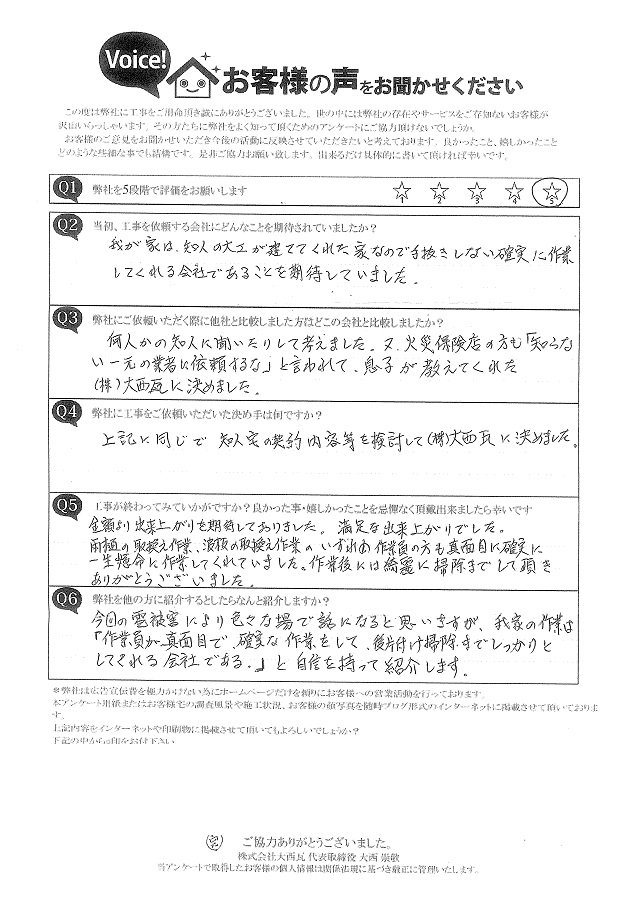 Voice!
お客様の声をお聞かせください
この度は弊社に工事をご用命頂き誠にありがとうございました。世の中には弊社の存在やサービスをご存知ないお客様が
沢山いらっしゃいます。その方たちに弊社をよく知って頂くためのアンケートにご協力頂けないでしょうか。
お客様のご意見をお聞かせいただき今後の活動に反映させていただきたいと考えております。良かったこと、嬉しかったこと
どのような些細な事でも結構です。是非ご協力お願い致します。出来るだけ具体的に書いて頂ければ幸いです。
Q1 弊社を5段階で評価をお願いします ☆1 ☆2 ☆3 ☆4 ☆5
Q2 当初、工事を依頼する会社にどんなことを期待されていましたか?
我が家は、知人の大工が建ててくれた家なので手抜きしない確実に作業
してくれる会社であることを期待していました。
Q3 弊社にご依頼いただく際に他社と比較しました方はどこの会社と比較しましたか?
何人かの知人に聞いたりして考えました。又、火災保険店の方も「知らな
い一元の業者に依頼するな」と言われて、息子が教えてくれた
(株)大西瓦に決めました。
Q4 弊社に工事をご依頼いただいた決め手は何ですか?
上記に同じで 知人宅の契約内容等を検討して(株)大西瓦に決めました。
Q5 工事が終わってみていかがですか?良かった事・嬉しかったことを忌憚なく頂戴出来ましたら幸いです
金額より出来上がりを期待しておりました。満足な出来上がりでした。
雨樋の取換え作業、波板の取換え作業のいずれの作業員の方も真面目に確実に
一生懸命に作業してくれていました。作業後には綺麗に掃除までして頂き
ありがとうございました。
Q6 弊社を他の方に紹介するとしたらなんと紹介しますか?
今回の雹被害により色々な場で話になると思いますが、我家の作業は
「作業員が真面目で、確実な作業をして、後片付け掃除までしっかりと
してくれる会社である。」と自信を持って紹介します。
*弊社は広告宣伝費を極力かけない為にホームページだけを頼りにお客様への営業活動を行っております。
本アンケート用紙またはお客様宅の調査風景や施工状況、お客様の顔写真を随時ブログ形式のインターネットに掲載させて頂いておりま
す。
上記内容をインターネットや印刷物に掲載させて頂いてもよろしいでしょうか?
下記の中から○印をお付け下さい
ご協力ありがとうございました。
株式会社大西瓦 代表取締役 大西 崇敬
当アンケートで取得したお客様の個人情報は関係法規に基づき厳正に管理いたします。